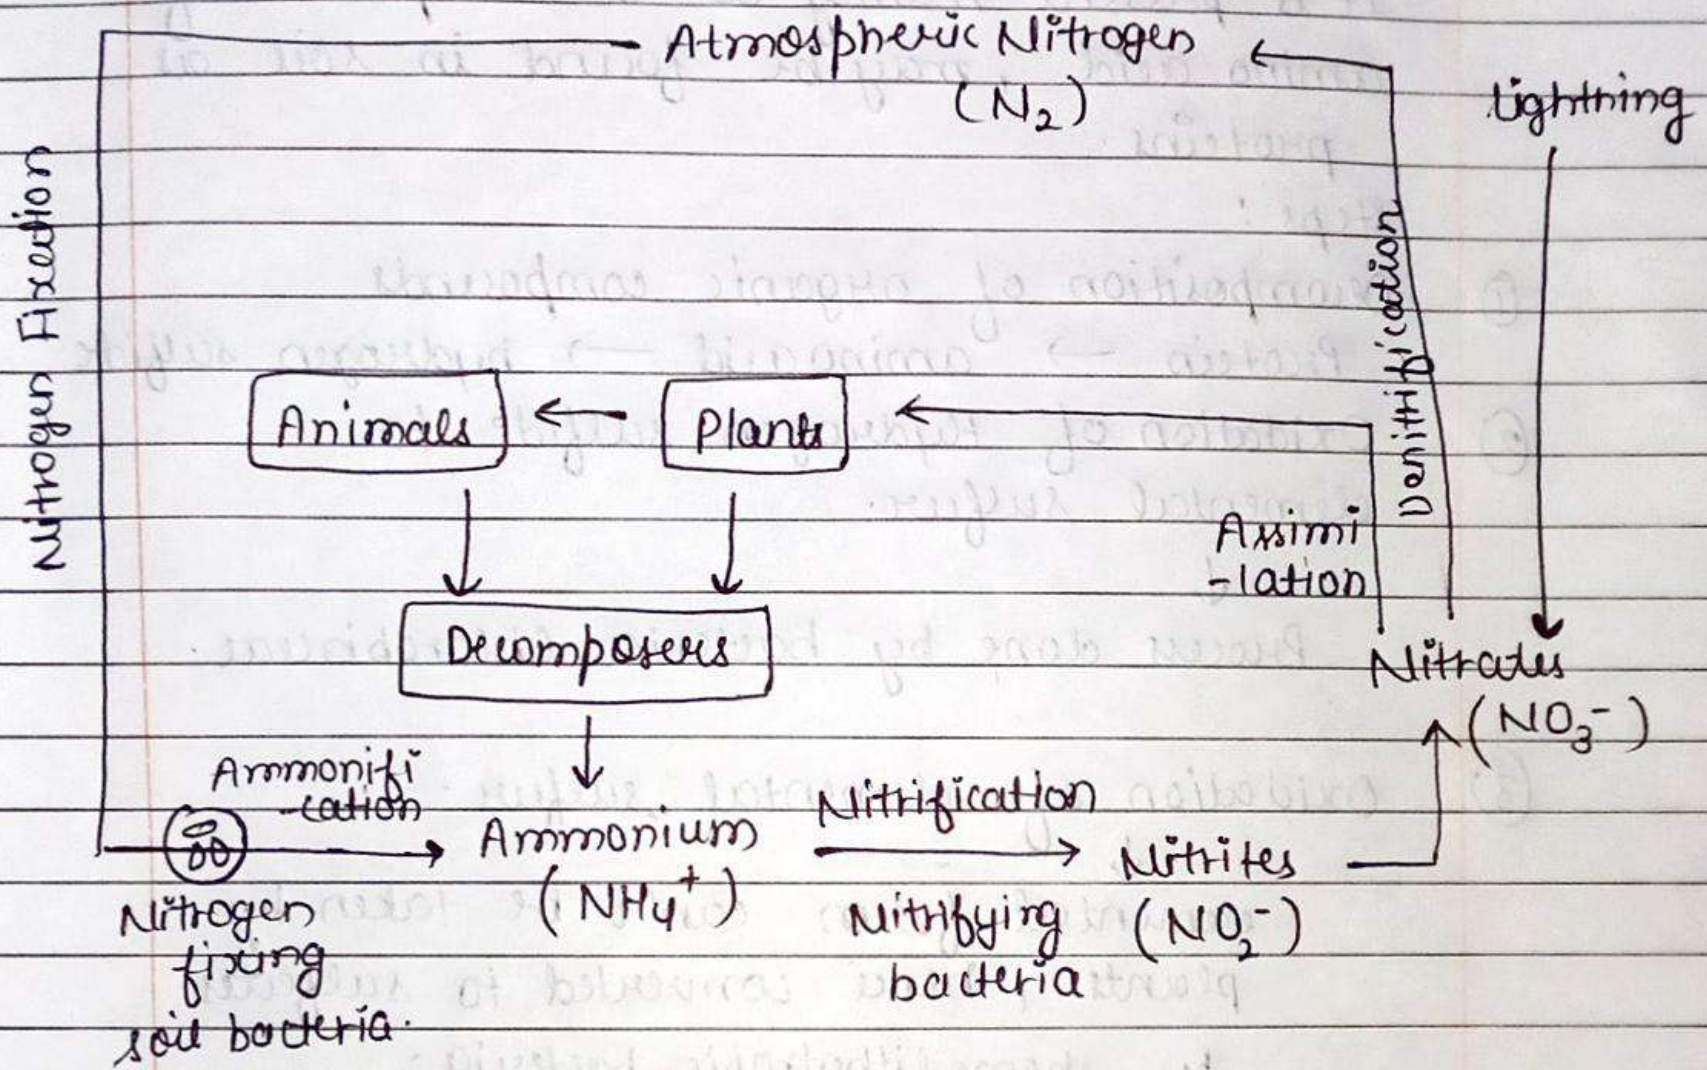 Atmospheric Nitrogen
(N₂)
Lightning
Nitrogen Fixection
Denitrification
Animals
Plants
Assimi
-lation
Decomposers
Nitrates
(NO₃⁻)
Ammonifi
-cation
Ammonium
(NH₄⁺)
Nitrification
Nitrifying
bacteria
Nitrites
(NO₂⁻)
Nitrogen
fixing
soil bacteria.